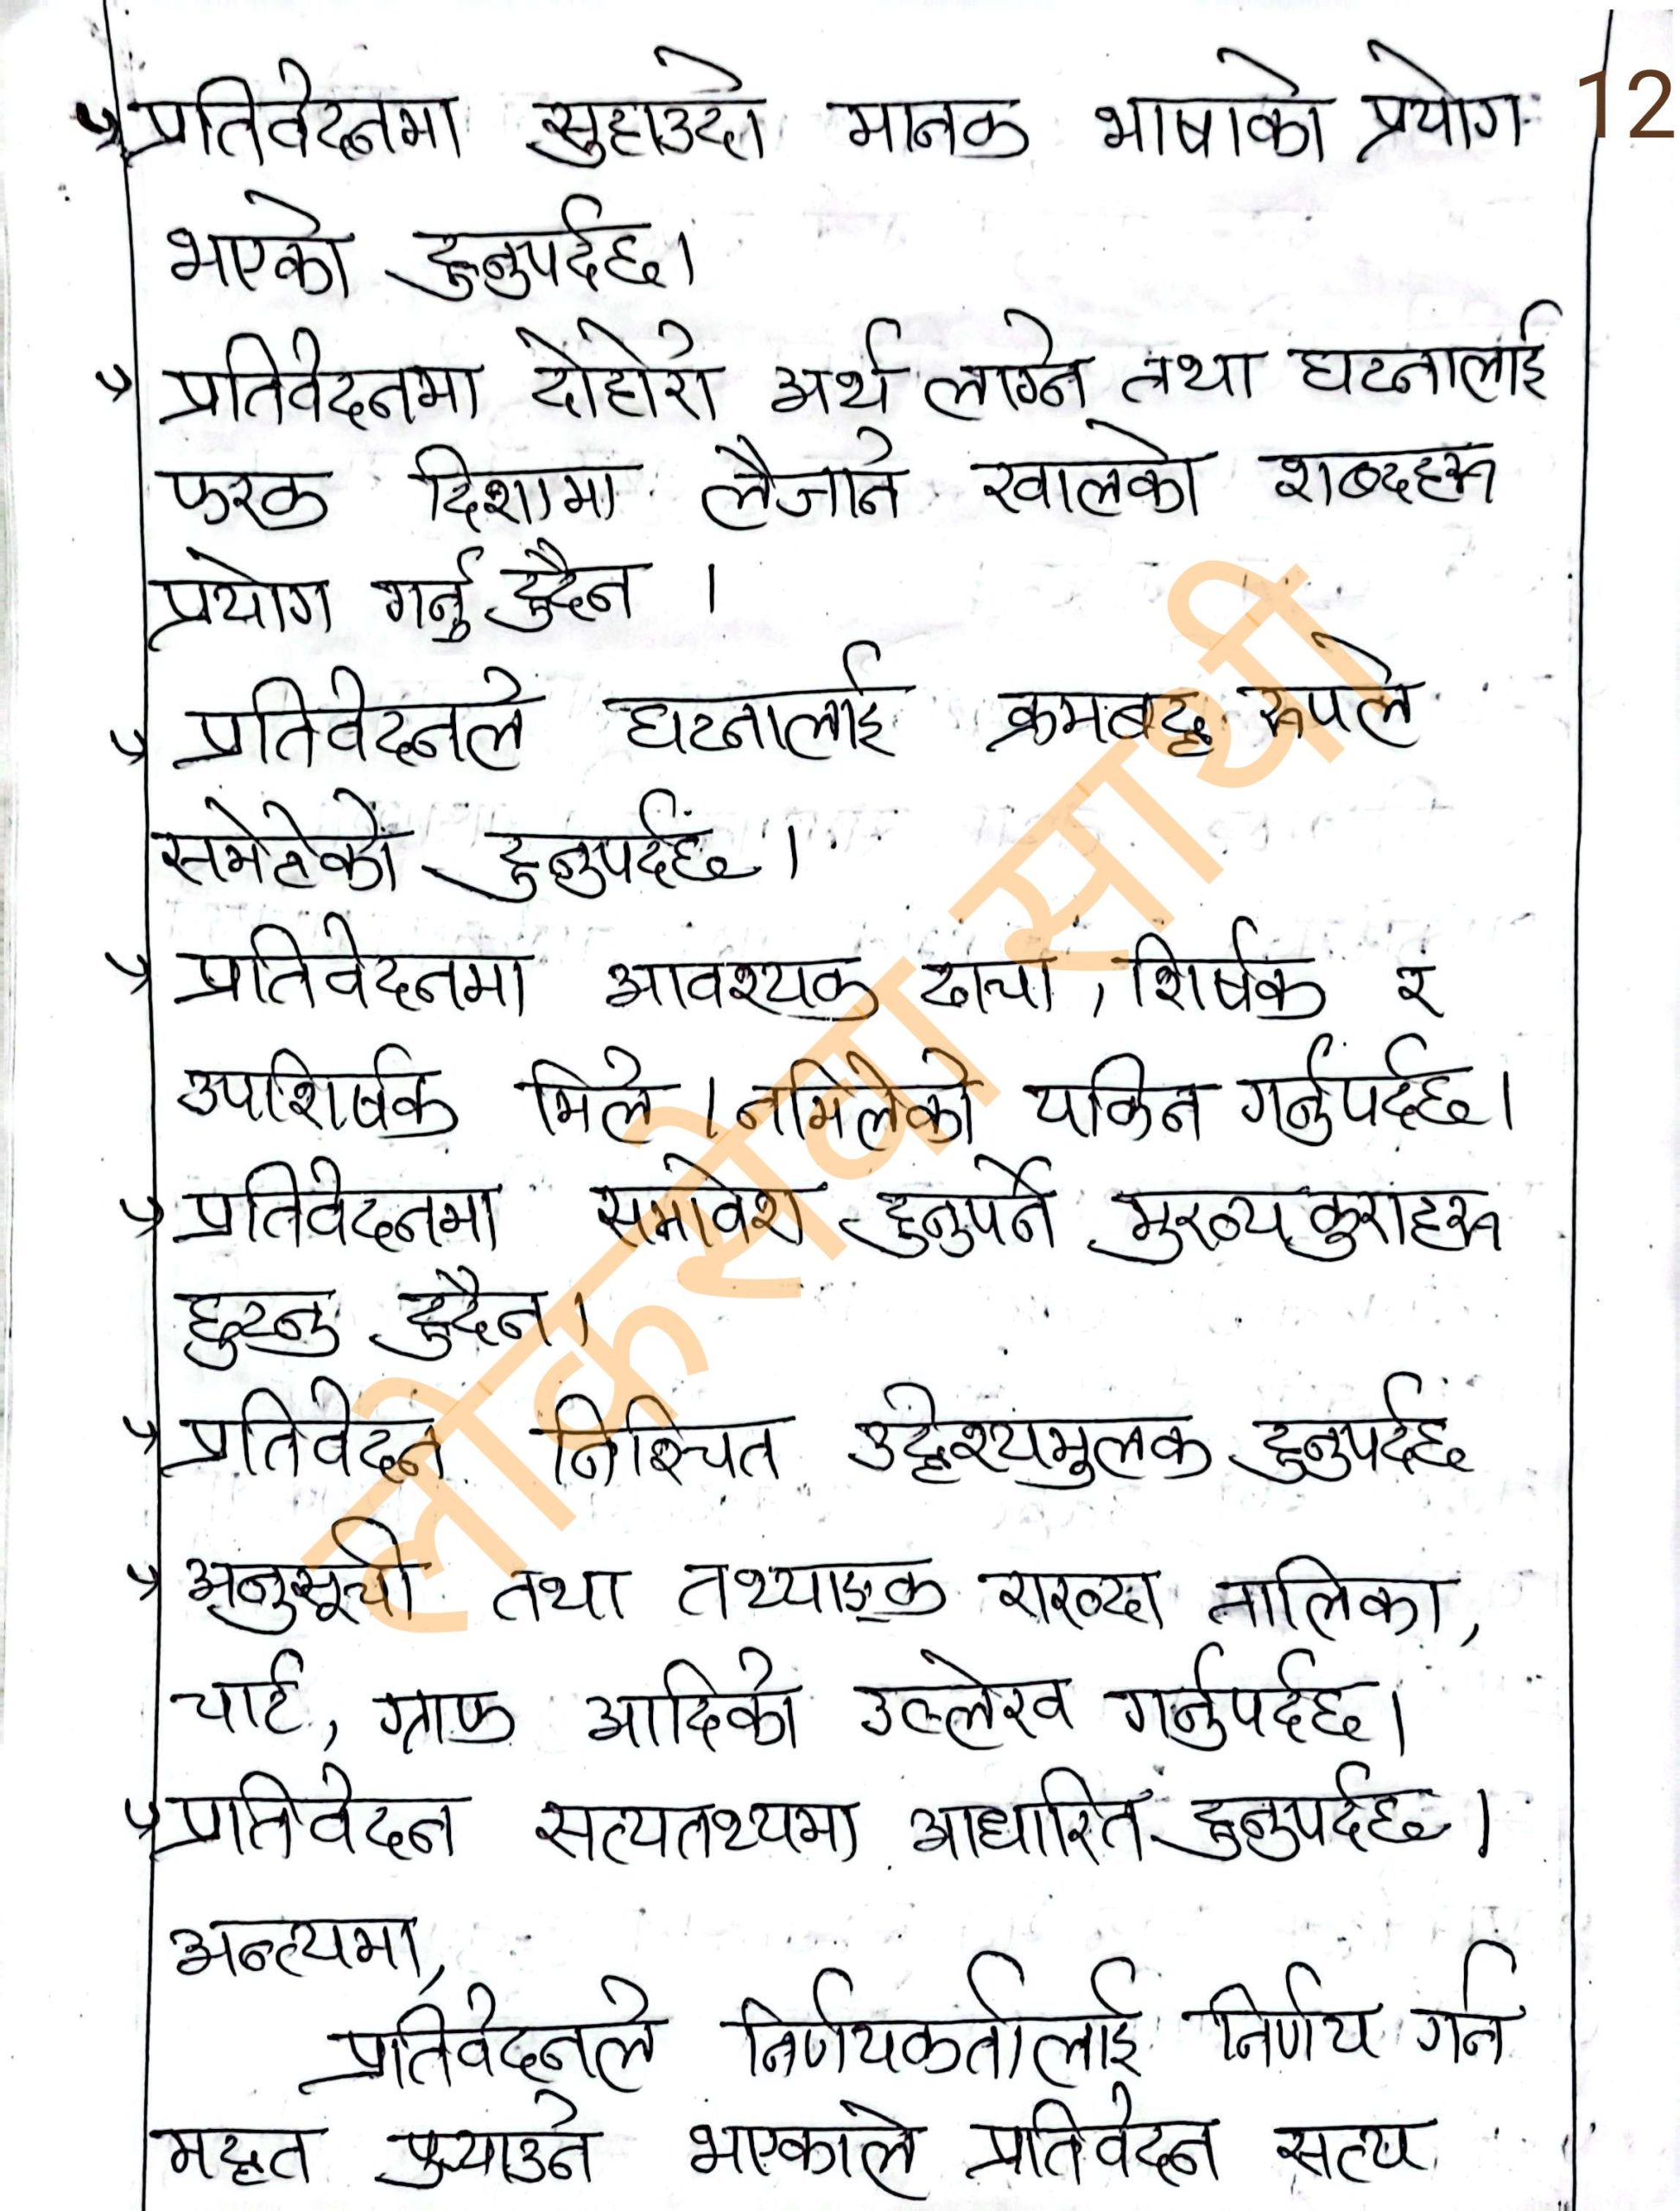 प्रतिवेदनमा सुहाउदो मानक भाषाको प्रयोग 12
भएको हुनुपर्दछ।
प्रतिवेदनमा दोहोरो अर्थ लाग्ने तथा घटनालाई
फरक दिशामा लैजाने खालको शब्दहरू
प्रयोग गर्नु हुदैन ।
प्रतिवेदनले घटनालाई क्रमबद्ध रूपले
समेटेको हुनुपर्दछ ।
प्रतिवेदनमा आवश्यक ढाचा, शिर्षक र
उपशिर्षक मिले / नमिलेको यकिन गर्नुपर्दछ।
प्रतिवेदनमा समावेश हुनुपर्ने मुख्य कुराहरू
छुट्नु हुदैन।
प्रतिवेदन निश्चित उद्देश्यमुलक हुनुपर्दछ
अनुसूची तथा तथ्याङ्क राख्दा तालिका,
चार्ट, ग्राफ आदिको उल्लेख गर्नुपर्दछ।
प्रतिवेदन सत्यतथ्यमा आधारित हुनुपर्दछ।
अन्त्यमा,
प्रतिवेदनले निर्णयकर्तालाई निर्णय गर्न
मद्दत पुर्‍याउने भएकाले प्रतिवेदन सत्य
लोकसेवा साथी